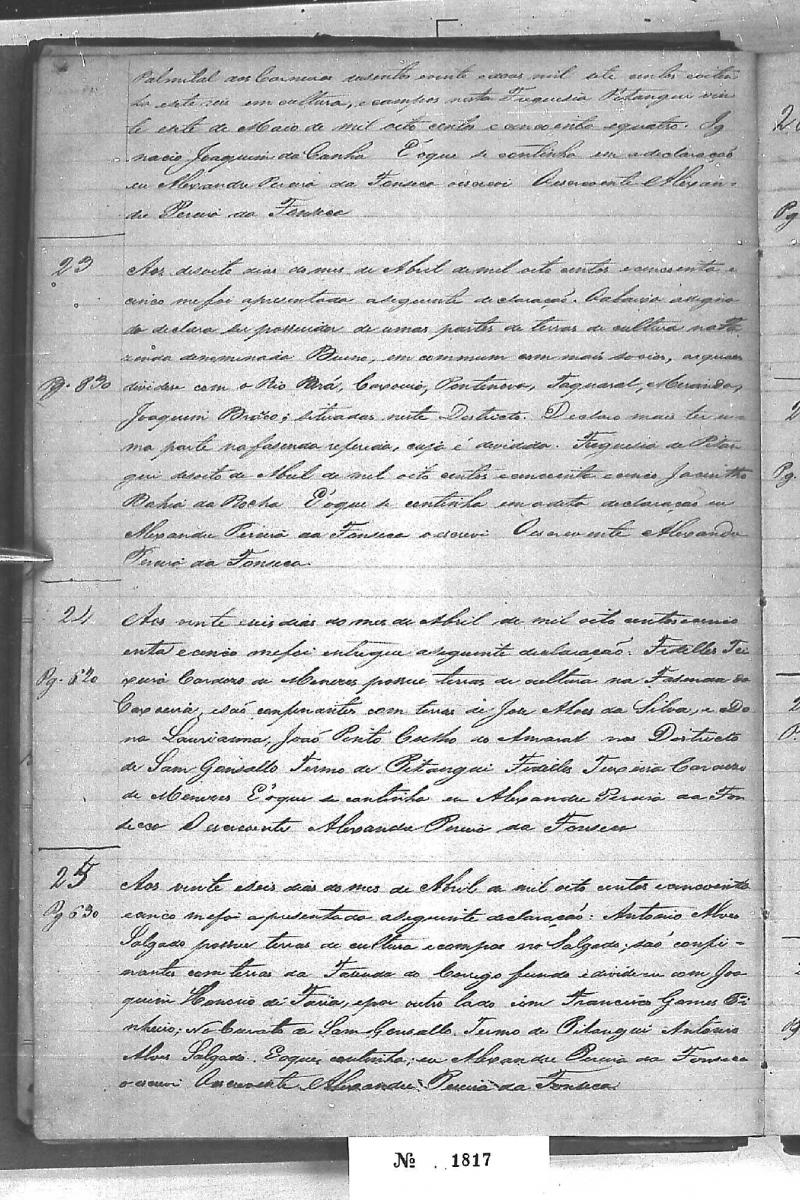 Palmital dos Carneiros dusentos vinte e dous mil sete centos e oiten-
ta e sete reis em cultura, e campos nesta Freguesia Pitangui vin
te e sete de Maio de mil oito centos e cincoenta e quatro. Ig
nacio Joaquim da Cunha E o que se continha em a declaração
eu Alexandre Pereira da Fonseca o escrevi O escrevente Alexan-
dre Pereira da Fonseca
23
Aos desoito dias do mes de Abril de mil oito centos e cincoenta e
cinco me foi apresentada a seguinte declaração. O abaixo assigna
do declara ser possuidor de umas partes de terras de cultura na Fa
zenda denominada Bueno, em commum com mais socios, as quaes
Pg. 830
dividese com o Rio Pará, Caxoeira, Pontenova, Taquaral, Miranda,
Joaquim Braço; situadas neste Destricto. Declaro mais ter u-
ma parte na fasenda referida, cuja é dividida. Freguesia de Pitan
gui desoito de Abril de mil oito centos e cincoenta e cinco Jacintho
Bahia da Rocha E o que se continha em a dita declaração eu
Alexandre Pereira da Fonseca o escrevi O escrevente Alexandre
Pereira da Fonseca.
24
Aos vinte e seis dias do mes de Abril de mil oito centos e cinco
enta e cinco me foi entregue a seguinte declaração: Fidelles Tei
Pg. 620
xeira Cardozo de Menezes possue terras de cultura na Fasenda da
Caxoeira, e são confinantes com terras de Jose Alves da Silva, e Do
na Laurianna, João Pinto Coelho do Amaral no Destricto
de Sam Gonsallo Termo de Pitangui Fidelles Teixeira Cardozo
de Menezes E o que se continha eu Alexandre Pereira da Fon
seca O escrevente Alexandre Pereira da Fonseca
25
Aos vinte e seis dias do mes de Abril de mil oito centos e cincoenta
Pg 630
e cinco me foi apresentada a seguinte declaração: Antonio Alves
Salgado possue terras de cultura e campos no Salgado; são confi-
nantes com terras da Fazenda do Corrego fundo e divide se com Joa
quim Honorio de Faria, e por outro lado com Francisco Gomes Pi
nheiro; No Curato de Sam Gonsallo Termo de Pitangui Antonio
Alves Salgado. E o que continha; eu Alexandre Pereira da Fonseca
o escrevi O escrevente Alexandre Pereira da Fonseca
Nº 1817